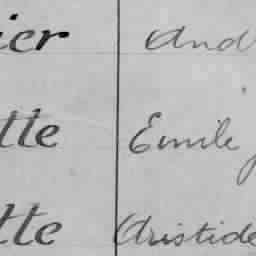 ier And
tte Emile J
tte Aristide